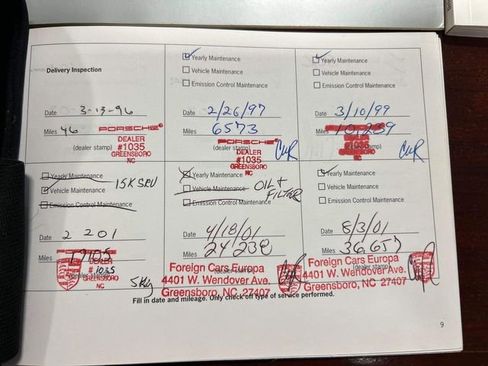 Delivery Inspection
Date 3-13-96
Miles 46
PORSCHE
DEALER
#1035
(dealer stamp)
GREENSBORO
NC
Yearly Maintenance
Vehicle Maintenance
Emission Control Maintenance
Date 2/26/97
Miles 6573
PORSCHE
(dealer stamp)
DEALER
#1035
GREENSBORO
NC
Yearly Maintenance
Vehicle Maintenance
Emission Control Maintenance
Date 3/10/99
Miles 10,239
#1035
Yearly Maintenance
Vehicle Maintenance
15K
Emission Control Maintenance
Date 2 2 01
Miles
DEALER
#1035
GREENSBORO
NC
Yearly Maintenance
Vehicle Maintenance
OIL +
FILTER
Emission Control Maintenance
Date 4/18/01
Miles 24238
Foreign Cars Europa
4401 W. Wendover Ave.
Greensboro, NC 27407
Yearly Maintenance
Vehicle Maintenance
Emission Control Maintenance
Date 8/3/01
Miles 36657
Foreign Cars Europa
4401 W. Wendover Ave.
Greensboro, NC 27407
Fill in date and mileage. Only check off type of service performed.
9